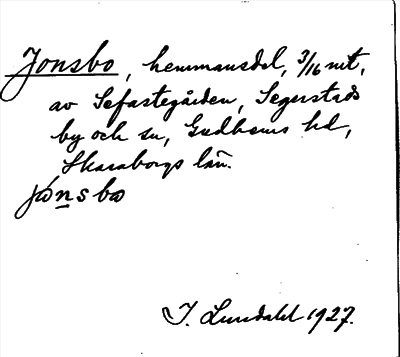 Jonsbo, hemmansdel, 3/16 mt,
av Sefastegården, Segerstads
by och sn, Gudhems hd,
Skaraborgs län.
jonsbo
I. Lundahl 1927.